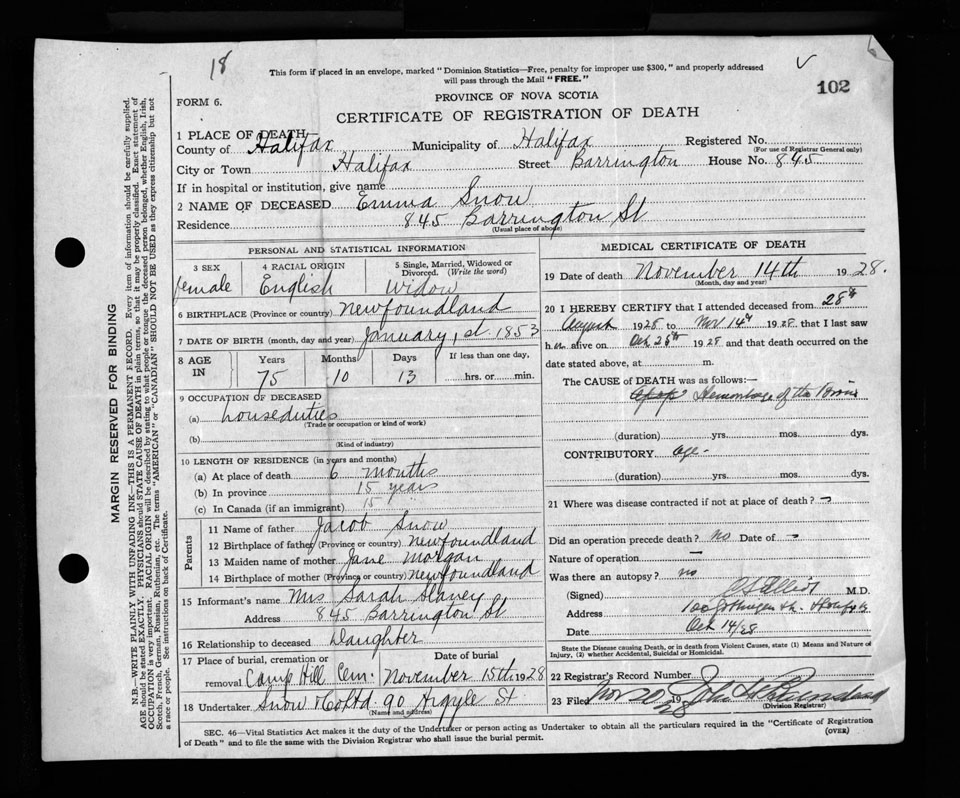 18
This form if placed in an envelope, marked "Dominion Statistics—Free, penalty for improper use $300," and properly addressed
will pass through the Mail "FREE."
102
FORM 6.
PROVINCE OF NOVA SCOTIA
CERTIFICATE OF REGISTRATION OF DEATH
1 PLACE OF DEATH
County of Halifax Municipality of Halifax Registered No.
(For use of Registrar General only)
City or Town Halifax Street Barrington House No. 845
If in hospital or institution, give name
2 NAME OF DECEASED Emma Snow
Residence 845 Barrington St
(Usual place of abode)
PERSONAL AND STATISTICAL INFORMATION
3 SEX 4 RACIAL ORIGIN 5 Single, Married, Widowed or Divorced. (Write the word)
female English Widow
6 BIRTHPLACE (Province or country) Newfoundland
7 DATE OF BIRTH (month, day and year) January, 1st 1853
8 AGE IN Years Months Days If less than one day,
75 10 13 hrs. or min.
9 OCCUPATION OF DECEASED
(a) houseduties
(Trade or occupation or kind of work)
(b)
(Kind of industry)
10 LENGTH OF RESIDENCE (in years and months)
(a) At place of death 6 months
(b) In province 15 years
(c) In Canada (if an immigrant) 15
Parents
11 Name of father Jacob Snow
12 Birthplace of father (Province or country) Newfoundland
13 Maiden name of mother Jane Morgan
14 Birthplace of mother (Province or country) Newfoundland
15 Informant's name Mrs Sarah Slaney
Address 845 Barrington St
16 Relationship to deceased Daughter
17 Place of burial, cremation or removal Date of burial
Camp Hill Cem. November 15th 1928
18 Undertaker Snow & Co Ltd. 90 Argyle St
(Name and address)
MEDICAL CERTIFICATE OF DEATH
19 Date of death November 14th 1928.
(Month, day and year)
20 I HEREBY CERTIFY that I attended deceased from 28th
August 1928 to Nov 14th 1928 that I last saw
h er alive on Oct 28th 1928 and that death occurred on the
date stated above, at m.
The CAUSE OF DEATH was as follows:—
Hemorrhage of the Brain
(duration) yrs. mos. dys.
CONTRIBUTORY age-
(duration) yrs. mos. dys.
21 Where was disease contracted if not at place of death? —
Did an operation precede death? no Date of —
Nature of operation —
Was there an autopsy? no
(Signed) M.D.
Address
Date Oct 14/28
State the Disease causing Death, or in death from Violent Causes, state (1) Means and Nature of
Injury, (2) whether Accidental, Suicidal or Homicidal.
22 Registrar's Record Number
23 Filed Nov 20 1928 John
(Division Registrar)
SEC. 46—Vital Statistics Act makes it the duty of the Undertaker or person acting as Undertaker to obtain all the particulars required in the "Certificate of Registration
of Death" and to file the same with the Division Registrar who shall issue the burial permit.
(OVER)
MARGIN RESERVED FOR BINDING
N.B.—WRITE PLAINLY WITH UNFADING INK—THIS IS A PERMANENT RECORD. Every item of information should be carefully supplied.
AGE should be stated EXACTLY. PHYSICIANS should STATE CAUSE OF DEATH in plain terms, so that it may be properly classified. Exact statement of
OCCUPATION is very important. RACIAL ORIGIN will be described by stating to what people or tongue the deceased person belonged, whether English, Irish,
Scotch, French, German, Russian, Ruthenian, etc. The terms "AMERICAN" or "CANADIAN" SHOULD NOT BE USED as they express citizenship but not
a race or people. See instructions on back of Certificate.